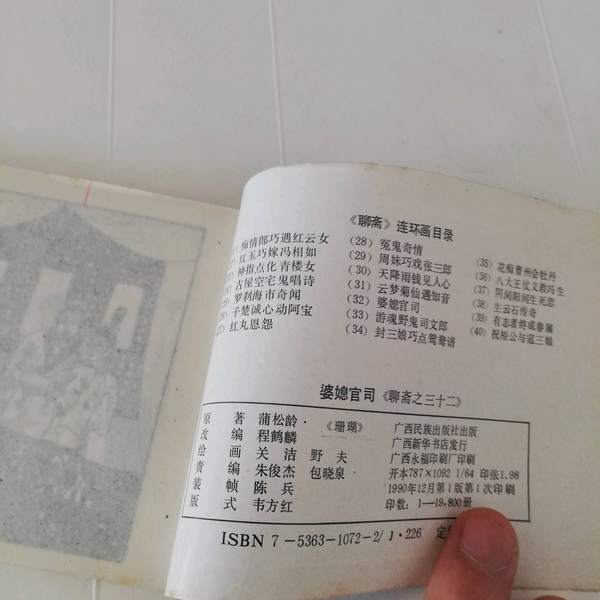 《聊斋》 连环画目录
痴情郎巧遇红云女
红玉巧嫁冯相如
神指点化青楼女
古屋空宅鬼唱诗
罗刹海市奇闻
千楚诚心动阿宝
红丸恩怨
(28) 冤鬼奇情
(29) 周妹巧戏张三郎
(30) 天降雨钱见人心
(31) 云萝菊仙遇知音
(32) 婆媳官司
(33) 游魂野鬼司文郎
(34) 封三娘巧点鸳鸯谱
(35) 花痴曹州会牡丹
(36) 八大王仗义救冯生
(37) 阴间阳间生死恋
(38) 主云石传奇
(39) 有志者终成眷属
(40) 祝相公与寇三娘
婆媳官司《聊斋之三十二》
原著 蒲松龄·《珊瑚》
改编 程鹤麟
绘画 关洁 野夫
责编 朱俊杰 包晓泉
装帧 陈兵
版式 韦方红
广西民族出版社出版
广西新华书店发行
广西永福印刷厂印刷
开本787×1092 1/64 印张1.98
1990年12月第1版第1次印刷
印数：1—19,800册
ISBN 7-5363-1072-2/J·226 定